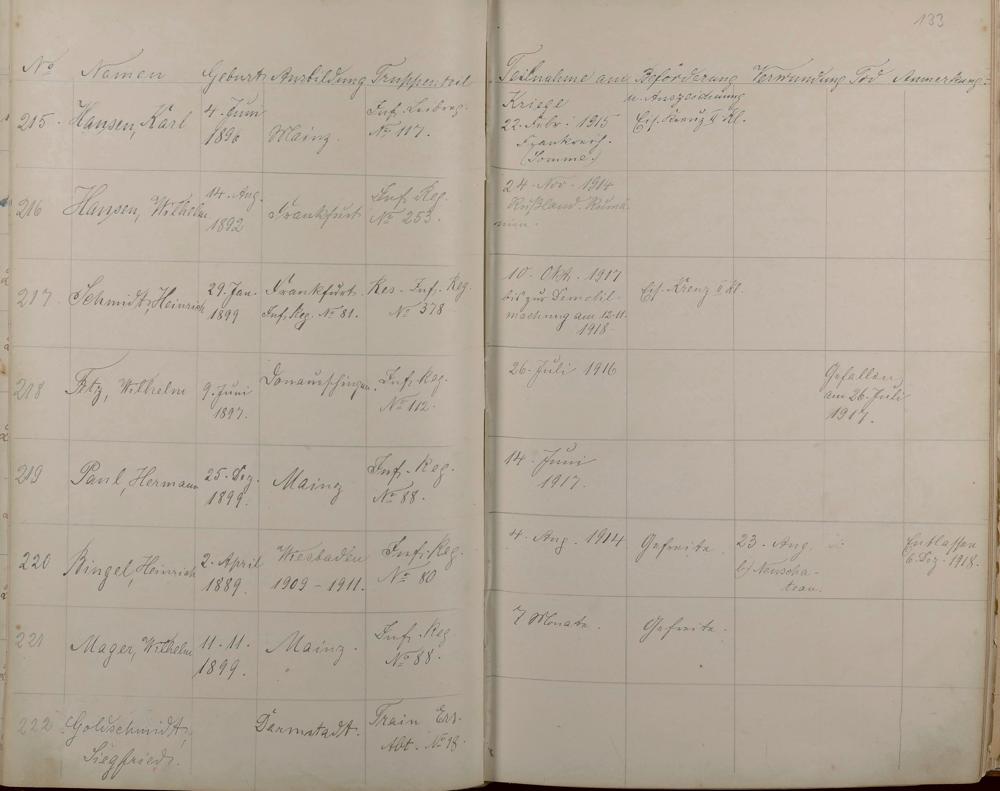 133
No Namen Geburt Ausbildung Truppenteil Teilnahme am Kriege Beförderung u. Auszeichnung Verwundung Tod Anmerkung:
215. Hansen, Karl 4. Juni 1896 Mainz. Inf. Leibreg. No 117. 22. Febr. 1915 Frankreich. (Somme.) Eis. Kreuz II Kl.
216 Hansen, Wilhelm 14. Aug. 1892 Frankfurt Inf. Reg. No 253. 24. Nov. 1914 Rußland. Rumänien.
217. Schmidt, Heinrich 29. Jan. 1899 Frankfurt. Inf. Reg. No 81. Res. Inf. Reg. No 378 10. Okt. 1917 bis zur Demobilmachung am 12.11. 1918. Eis. Kreuz II Kl.
218 Fetz, Wilhelm 9. Juni 1897. Donaueschingen. Inf. Reg. No 112. 26. Juli 1916 Gefallen am 26. Juli 1917.
219 Paul, Hermann 25. Dez. 1899. Mainz Inf. Reg. No 88. 14. Juni 1917.
220 Ringel, Heinrich 2. April 1889. Wiesbaden 1909 - 1911. Inf. Reg. No 80 4. Aug. 1914 Gefreite. 23. Aug. b/ Neuschateau. Entlassen 6. Dez. 1918.
221 Mager, Wilhelm 11. 11. 1899. Mainz. Inf. Reg. No 88. 7 Monate. Gefreite.
222 Goldschmidt, Siegfried. Darmstadt. Train Ers. Abt. No 18.